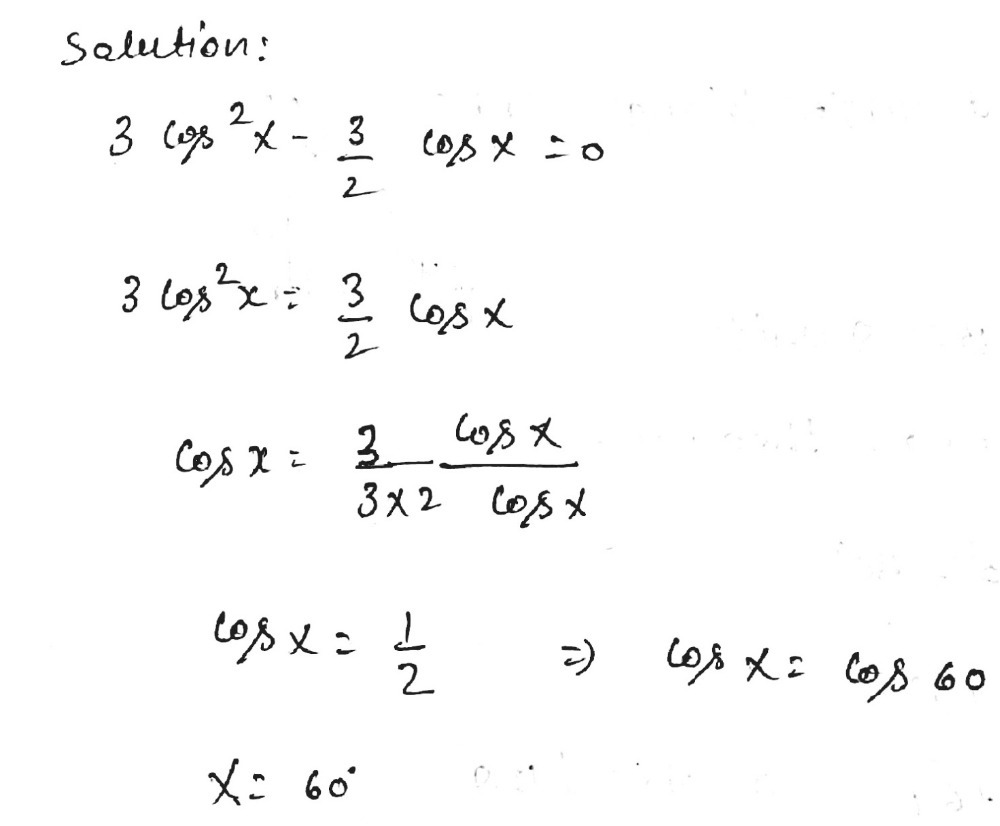 Salution:
3 cos²x - 3/2 cos x = 0
3 cos²x = 3/2 cos x
cos x = 3/(3×2) cos x/cos x
cos x = 1/2 ⇒ cos x = cos 60
x = 60°